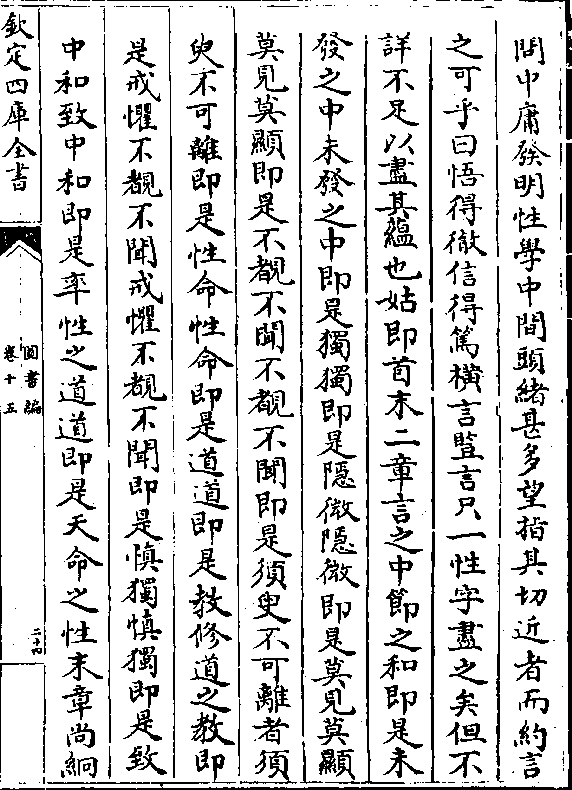 問中庸發明性學中間頭緒甚多望指其切近者而約言
之可乎曰悟得徹信得篤橫言豎言只一性字盡之矣但不
詳不足以盡其蘊也姑即首末二章言之中節之和即是未
發之中未發之中即是獨獨即是隱微隱微即是莫見莫顯
莫見莫顯即是不覩不聞不覩不聞即是須臾不可離者須
臾不可離即是性命性命即是道道即是教修道之教即
是戒懼不覩不聞戒懼不覩不聞即是慎獨慎獨即是致
中和致中和即是率性之道道即是天命之性末章尚絅
欽定四庫全書
圖書編
卷十五
二十四